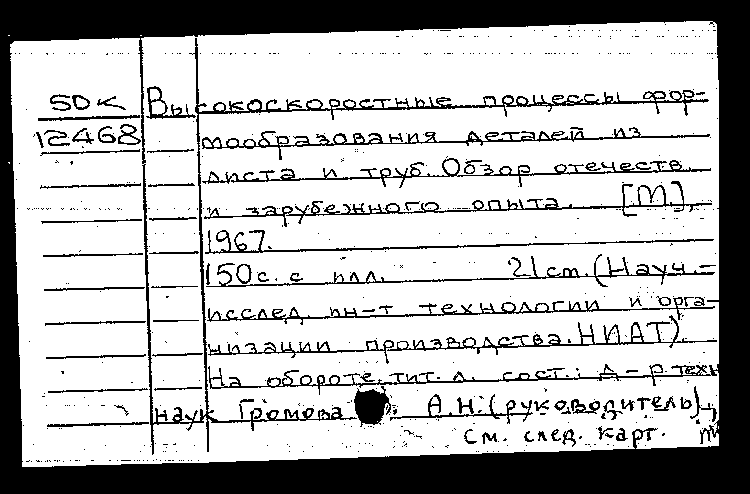 SDK Высокоскоростные процессы фор-
12468 мообразования деталей из
листа и труб. Обзор отечеств.
и зарубежного опыта. [М],
1967.
150с. с илл. 21см. (Науч.-
исслед. ин-т технологии и орга-
низации производства. НИАТ).
На обороте тит. л. сост.: д-р техн
наук Громова А.Н. (руководитель),
см. след. карт.